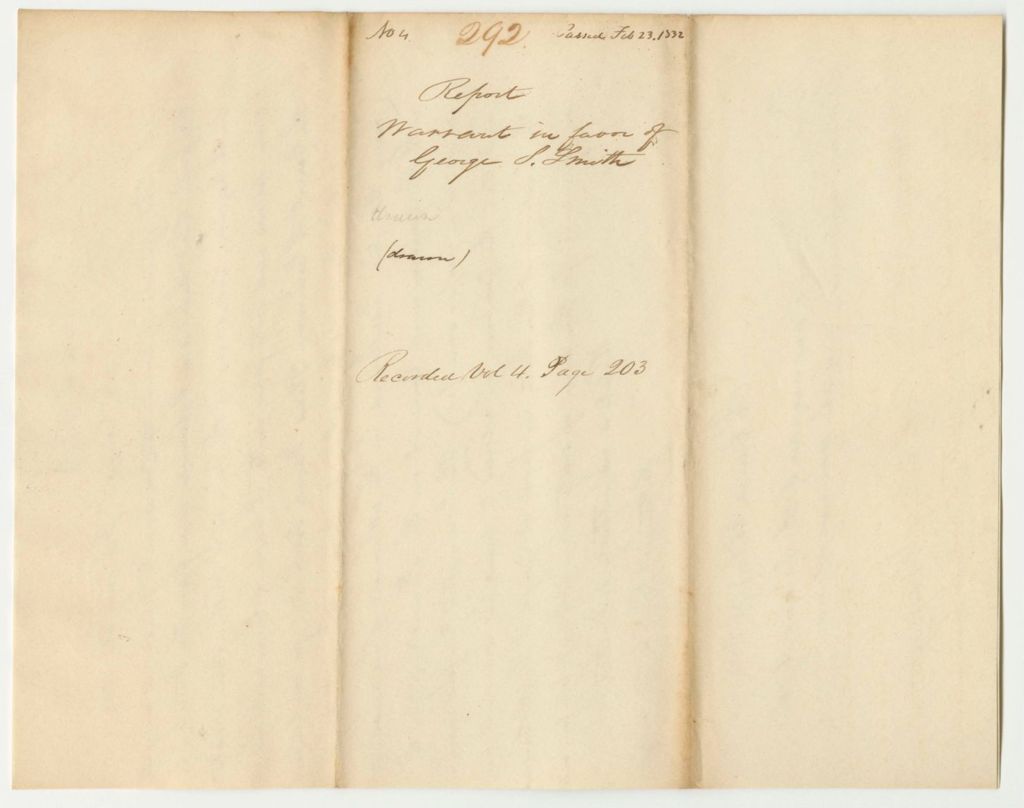 No 4 292. Passed Feb 23, 1832
Report
Warrant in favor of
George S. Smith
drawn
(drawn)
Recorded Vol 4. Page 203